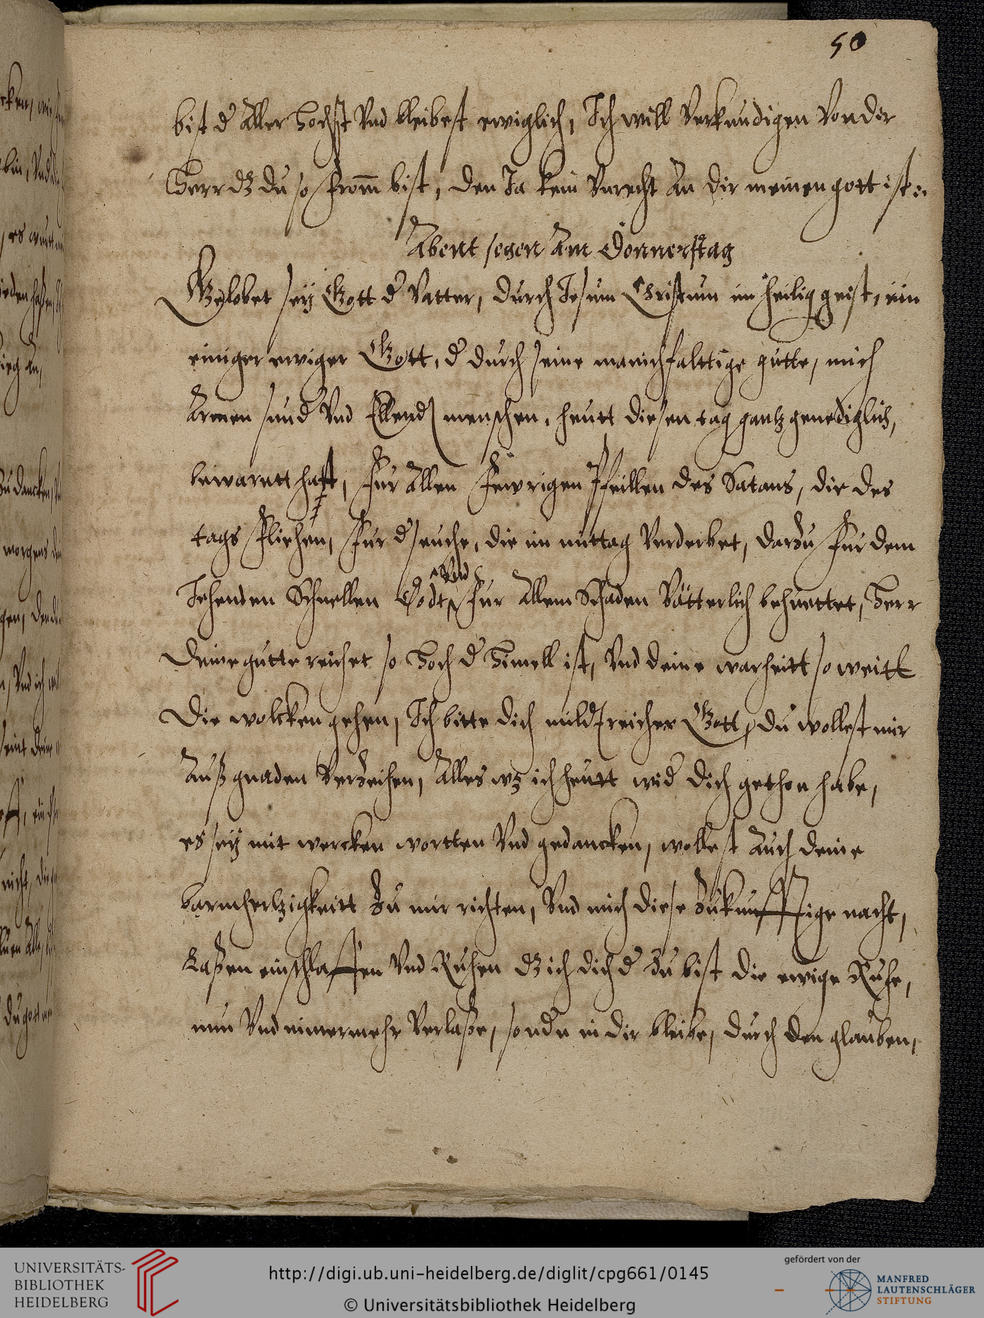 50
bist d Aller Hochst Vnd bleibest ewiglich, Ich will Verkundigen Von dir
Herr dz du so fromm bist, den Ja kein Vnrecht An dir meinen gott ist
Abent segen Am Donnerstag
Gelobet seÿ Gott d Vatter, durch Jesum Christum im heilig geist, ein
einiger ewiger Gott, d durch seine manichfalttige gutte, mich
Armen sund Vnd Ellend menschen, heutt diesen tag gantz genediglich,
bewarett hatt, fur Allen fewrigen Pfeillen des Satans, die des
tags fliehen, fur d seuche, die im mittag Verderbet, darzu fur dem
Jehenden Schnellen Todt, Vnd fur Allem Schaden Vätterlich behuettet, Herr
deine gutte reichet so Hoch d Himell ist, Vnd deine warheitt so weitt
die wolcken gehen, Ich bitte dich mildreicher Gott, du wollest mir
Auß gnaden Verzeihen, Alles wz ich heutt wid dich gethon habe,
es seÿ mit wercken wortten Vnd gedancken, wollest Auch deine
barmhertzigkeitt zu mir richten, Vnd mich diese zukunfftige nacht,
Laßen einschlaffen Vnd Ruhen dz ich dich d du bist die ewige Ruhe,
nun Vnd nimermehr Verlaße, sondn in dir bleibe, durch den glauben,
UNIVERSITÄTS-
BIBLIOTHEK
HEIDELBERG
http://digi.ub.uni-heidelberg.de/diglit/cpg661/0145
© Universitätsbibliothek Heidelberg
gefördert von der
MANFRED
LAUTENSCHLÄGER
STIFTUNG